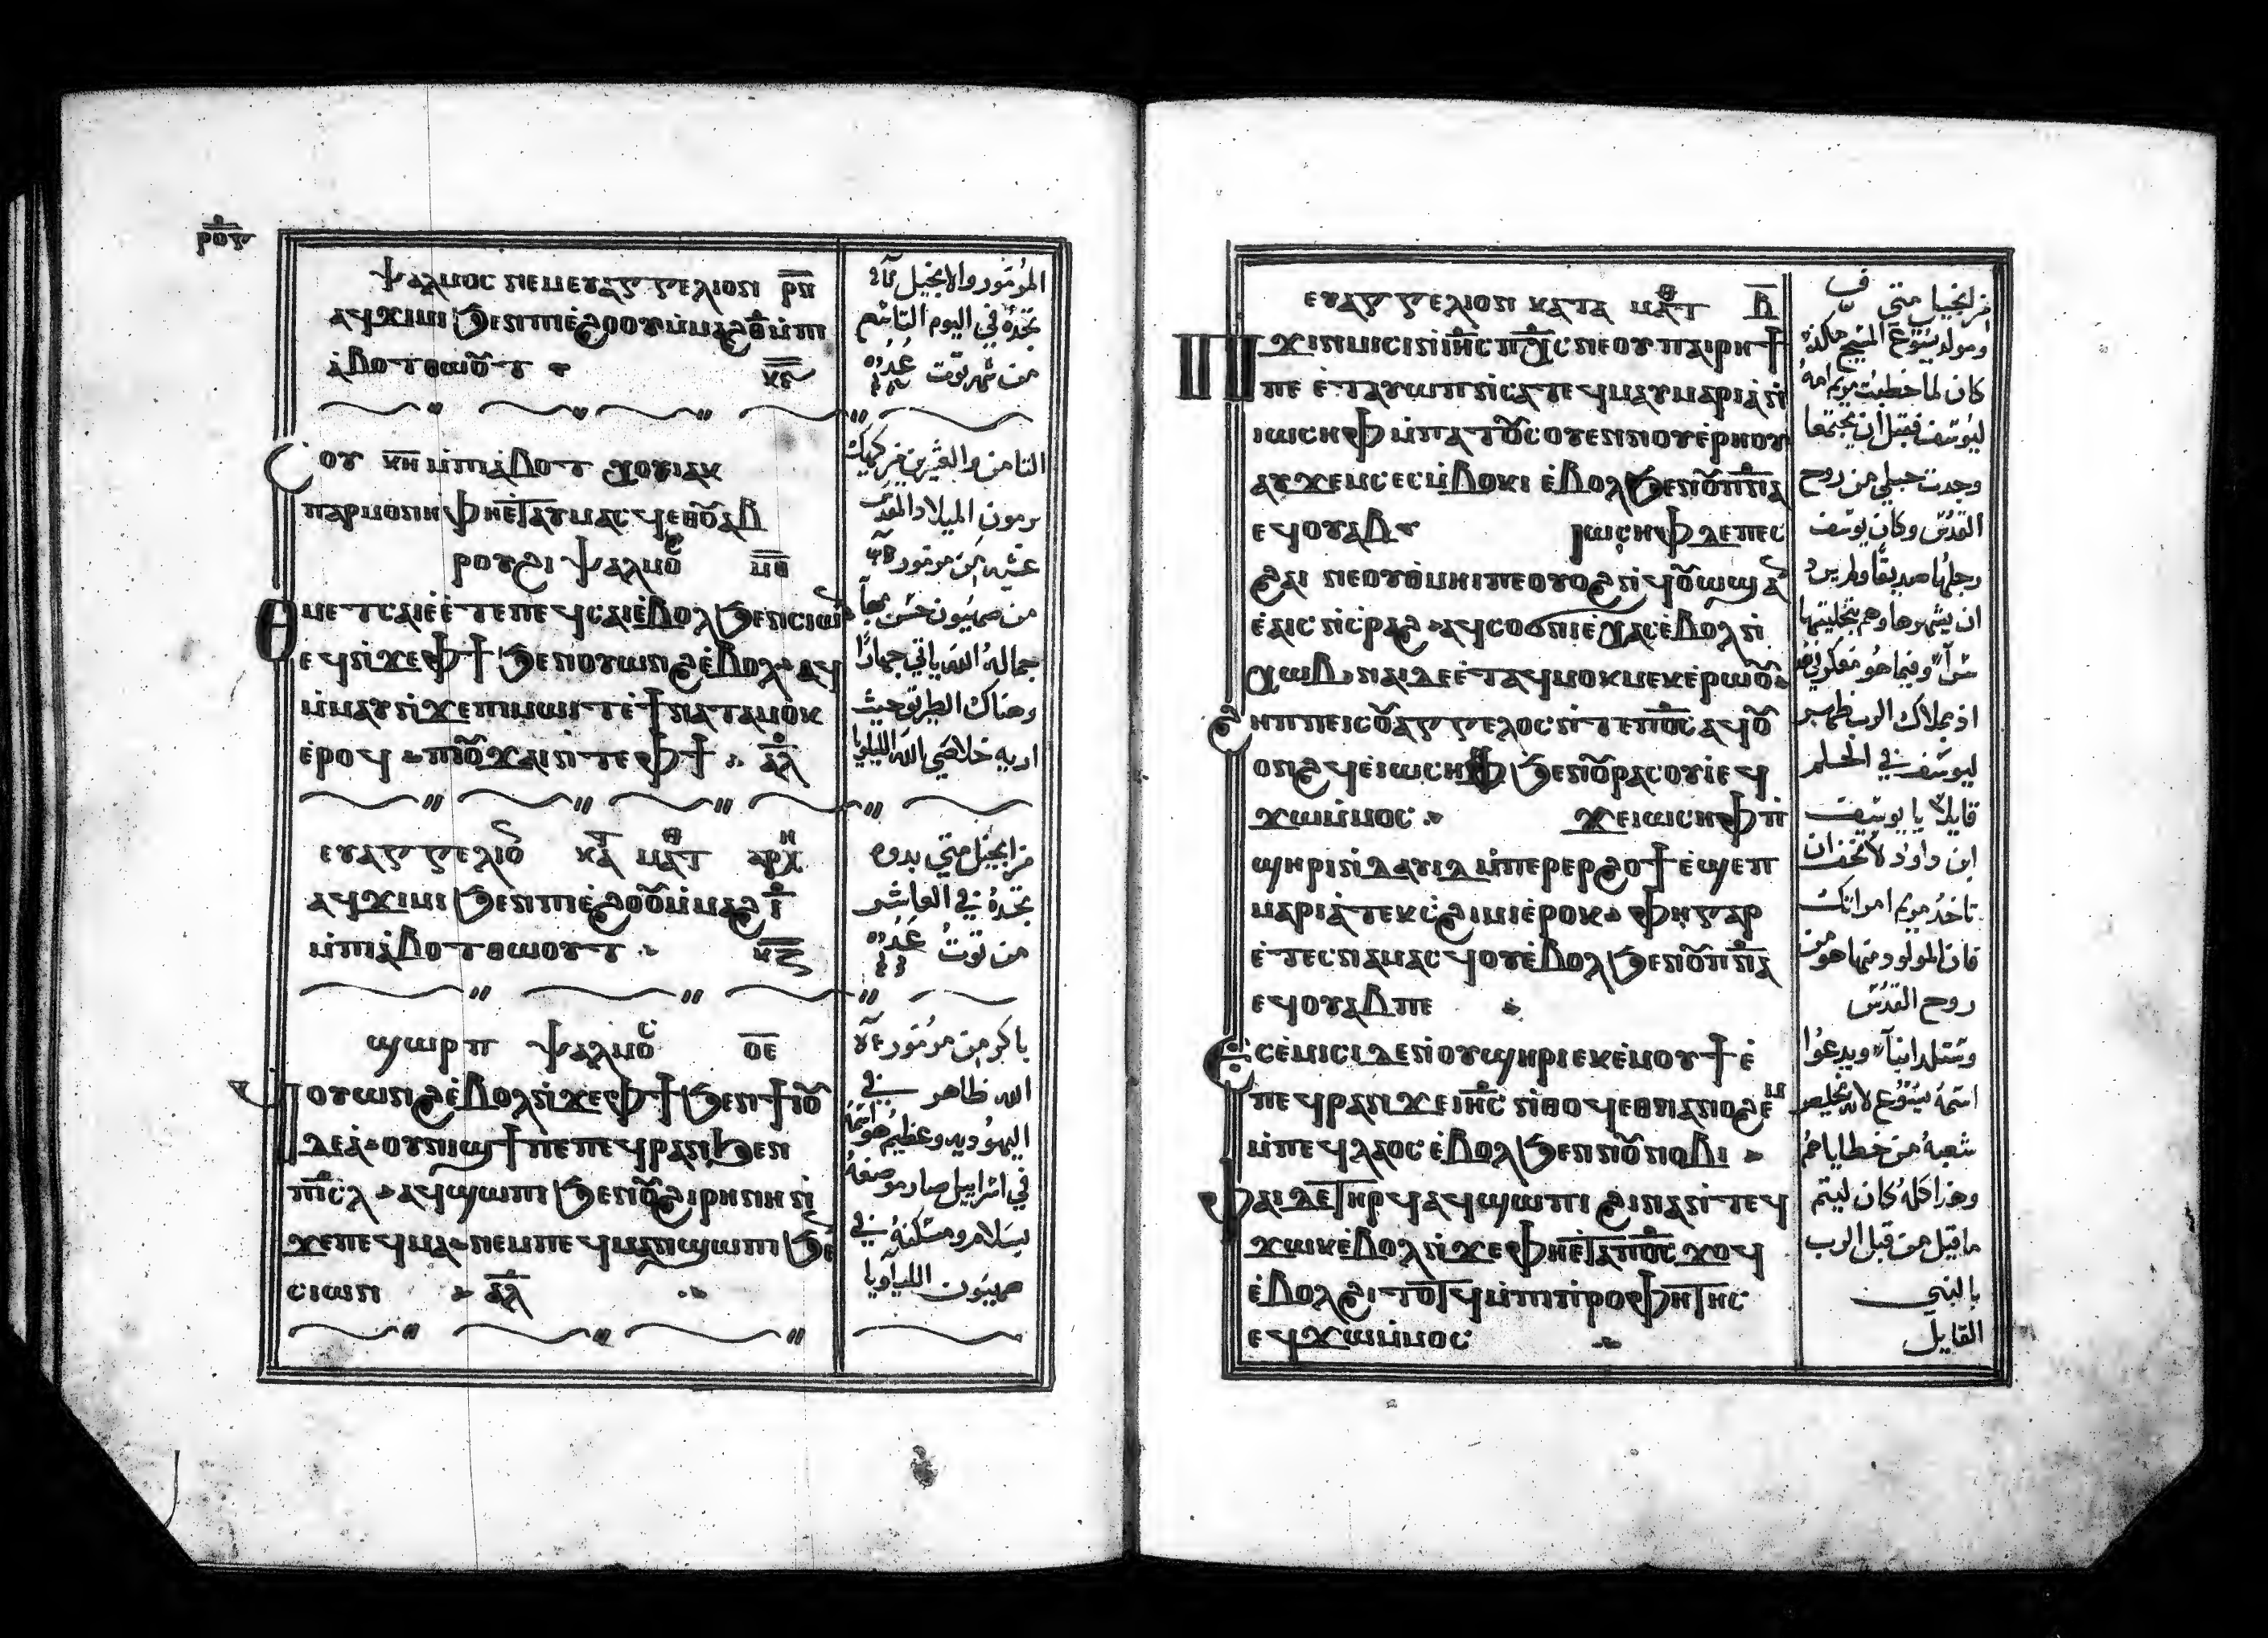 ⲣⲟⲅ
ⲯⲁⲗⲙⲟⲥ ⲛⲉⲙ ⲉⲩⲁⲅⲅⲉⲗⲓⲟⲛ ⲣⲡ
ⲁϥⲭⲓⲙⲓ ϧⲉⲛ ⲡⲓⲉ̀ϩⲟⲟⲩ ⲙ̀ⲙⲁϩ ⲑ ⲙ̀ⲡⲓ
ⲁ̀ⲃⲟⲧ ⲑⲱⲟ̅ⲧ ⲕⲉ
ⲥⲟⲩ ⲕⲏ ⲙ̀ⲡⲓⲁ̀ⲃⲟⲧ ⲭⲟⲩⲓⲁⲕ
ⲡⲁⲣⲙⲟⲛⲏ ⲫⲏⲉ̀ⲧⲁⲩⲙⲁⲥϥ ⲉⲑⲟ̅ⲁⲃ
ⲣⲟⲩϩⲓ ⲯⲁⲗⲙⲟ̅ ⲙⲑ
ⲑⲙⲉⲧⲥⲁⲓⲉ̀ ⲉ̀ⲧⲉ ⲡⲉϥⲥⲁⲓ ⲉ̀ⲃⲟⲗ ϧⲉⲛ ⲥⲓⲱⲛ
ⲉϥⲛ̀ϫⲉ ⲫϯ ϧⲉⲛ ⲟⲩⲱⲛϩ ⲉ̀ⲃⲟⲗ ⲁϥ
ⲙ̀ⲙⲁⲩ ⲛ̀ϫⲉ ⲡⲓⲙⲱⲓⲧ ⲉ̀ϯⲛⲁⲧⲁⲙⲟⲕ
ⲉ̀ⲣⲟϥ ⲡⲓⲟ̅ϫⲁⲓ ⲛ̀ⲧⲉ ⲫϯ ⲁⲗ
ⲉⲩⲁⲅⲅⲉⲗⲓⲟ̅ ⲕⲁⲧ ⲙⲁⲧⲑ ⲁⲣⲭⲏ
ⲁϥⲭⲓⲙⲓ ϧⲉⲛ ⲡⲓⲉ̀ϩⲟⲟ̅ ⲙ̀ⲙⲁϩ ⲓ
ⲙ̀ⲡⲓⲁ̀ⲃⲟⲧ ⲑⲱⲟⲩⲧ ⲕⲍ
ϣⲱⲣⲡ ⲯⲁⲗⲙⲟⲥ ⲟⲉ
ϥⲟⲩⲱⲛϩ ⲉ̀ⲃⲟⲗ ⲛ̀ϫⲉ ⲫϯ ϧⲉⲛ ϯⲓⲟ̅
ⲇⲉⲁ̀ ⲟⲩⲛⲓϣϯ ⲡⲉ ⲡⲉϥⲣⲁⲛ ϧⲉⲛ
ⲡⲓⲥ̅ⲗ ⲁϥϣⲱⲡⲓ ϧⲉⲛ ⲟ̅ϩⲓⲣⲏⲛⲏ ⲛ̀
ϫⲉ ⲡⲉϥⲙⲁ ⲛⲉⲙ ⲡⲉϥⲙⲁⲛϣⲱⲡⲓ ϧⲉ̅
ⲥⲓⲱⲛ ⲁⲗ
المزمور والانجيل
تجده في اليوم التاسع
من شهر توت عدده
الثامن والعشرين من كيهك
برمون الميلاد المقدس
عشية من مزمور
من صهيون حسن بها
جماله الله ياتي جهارًا
وهناك الطريق حيث
اريه خلاصي الله الليلويا
من انجيل متى بدوه
تجده في العاشر
من توت عدده
باكر من مزمور
الله ظاهر في
اليهودية وعظيم هو اسمه
في اسراييل صار موضعه
بسلام ومسكنه في
صهيون الليلويا
ⲉⲩⲁⲅⲅⲉⲗⲓⲟⲛ ⲕⲁⲧⲁ ⲙⲁⲧⲑ ⲃ
ⲡϫⲓⲛⲙⲓⲥⲓ ⲛ̀ⲓⲏⲥ ⲡⲭⲥ ⲛⲉ ⲟⲩ ⲡⲁⲓⲣⲏϯ
ⲡⲉ ⲉ̀ⲧⲁⲩⲱⲡ ⲛ̀ⲥⲁ ⲧⲉϥⲙⲁⲩ ⲙⲁⲣⲓⲁ̀ ⲛ̀
ⲓⲱⲥⲏⲫ ⲙ̀ⲡⲁⲧⲟ̅ⲥⲟⲩⲉⲛ ⲛⲟⲩⲉ̀ⲣⲏⲟⲩ
ⲁⲩϫⲉⲙⲥ ⲉⲥⲙ̀ⲃⲟⲕⲓ ⲉ̀ⲃⲟⲗ ϧⲉⲛ ⲟ̅ⲡⲛⲁ
ⲉϥⲟⲩⲁⲃ ⲓⲱⲥⲏⲫ ⲇⲉ ⲡⲉⲥ
ϩⲁⲓ ⲛⲉ ⲟⲩⲑ̀ⲙⲏⲓ ⲡⲉ ⲟⲩⲟϩ ⲛ̀ϥⲟ̅ⲱϣ ⲁⲛ
ⲉ̀ⲁⲓⲥ ⲛ̀ⲥ̀ⲣⲁϩ ⲁϥⲥⲟϭⲛⲓ ⲉ̀ⲭⲁⲥ ⲉ̀ⲃⲟⲗ ⲛ̀
ⲭⲱⲃ ⲛⲁⲓ ⲇⲉ ⲉ̀ⲧⲁϥⲙⲟⲕⲙⲉⲕ ⲉ̀ⲣⲱⲟ̅
ϩⲏⲡⲡⲉ ⲓⲥ ⲟ̅ⲁⲅⲅⲉⲗⲟⲥ ⲛ̀ⲧⲉ ⲡⲟⲥ ⲁϥⲟ̅
ⲟⲛϩϥ ⲉ̀ⲓⲱⲥⲏⲫ ϧⲉⲛ ⲟ̅ⲣⲁⲥⲟⲩⲓ̀ ⲉϥ
ϫⲱⲙ̀ⲙⲟⲥ ϫⲉ ⲓⲱⲥⲏⲫ ⲡ̀
ϣⲏⲣⲓ ⲛ̀ⲇⲁⲩⲓⲇ ⲙ̀ⲡⲉⲣⲉⲣϩⲟϯ ⲉ̀ϣⲉⲡ
ⲙⲁⲣⲓⲁ̀ ⲧⲉⲕⲥ̀ϩⲓⲙⲓ ⲉ̀ⲣⲟⲕ ⲫⲏ ⲅⲁⲣ
ⲉ̀ⲧⲉⲥⲛⲁⲙⲁⲥϥ ⲟⲩⲉ̀ⲃⲟⲗ ϧⲉⲛ ⲟ̅ⲡⲛⲁ
ⲉϥⲟⲩⲁⲃ ⲡⲉ
ⲉⲥⲉ̀ⲙⲓⲥⲓ ⲇⲉ ⲛ̀ⲟⲩϣⲏⲣⲓ ⲉⲕⲉ̀ⲙⲟⲩϯ ⲉ̀
ⲡⲉϥⲣⲁⲛ ϫⲉ ⲓⲏⲥ ⲛ̀ⲑⲟϥ ⲉⲑⲛⲁⲛⲟϩⲉⲙ
ⲙ̀ⲡⲉϥⲗⲁⲟⲥ ⲉ̀ⲃⲟⲗ ϧⲉⲛ ⲛⲟ̅ⲛⲟⲃⲓ
ⲫⲁⲓ ⲇⲉ ⲧⲏⲣϥ ⲁϥϣⲱⲡⲓ ϩⲓⲛⲁ ⲛ̀ⲧⲉϥ
ϫⲱⲕ ⲉ̀ⲃⲟⲗ ⲛ̀ϫⲉ ⲫⲏⲉ̀ⲧⲁ ⲡⲟⲥ ϫⲟϥ
ⲉ̀ⲃⲟⲗ ϩⲓⲧⲟⲧϥ ⲙ̀ⲡⲓⲡ̀ⲣⲟⲫⲏⲧⲏⲥ
ⲉϥϫⲱⲙ̀ⲙⲟⲥ
من انجيل متى
ومولد يسوع المسيح هكذا
كان لما خطبت مريم امه
ليوسف فقبل ان يجتمعا
وجدت حبلى من روح
القدس وكان يوسف
رجلها صديقًا ولم يرد
ان يشهرها وهم بتخليتها
سرًا وفيما هو مفكر في هذا
اذ بملاك الرب ظهر
ليوسف في الحلم
قايلا يا يوسف
ابن داود لا تخف ان
تاخذ مريم امراتك
فان المولود منها هو من
روح القدس
وستلد ابنًا ويدعوا
اسمه يسوع لانه يخلص
شعبه من خطاياهم
وهذا كله كان ليتم
ما قيل من قبل الرب
بالنبي
القايل